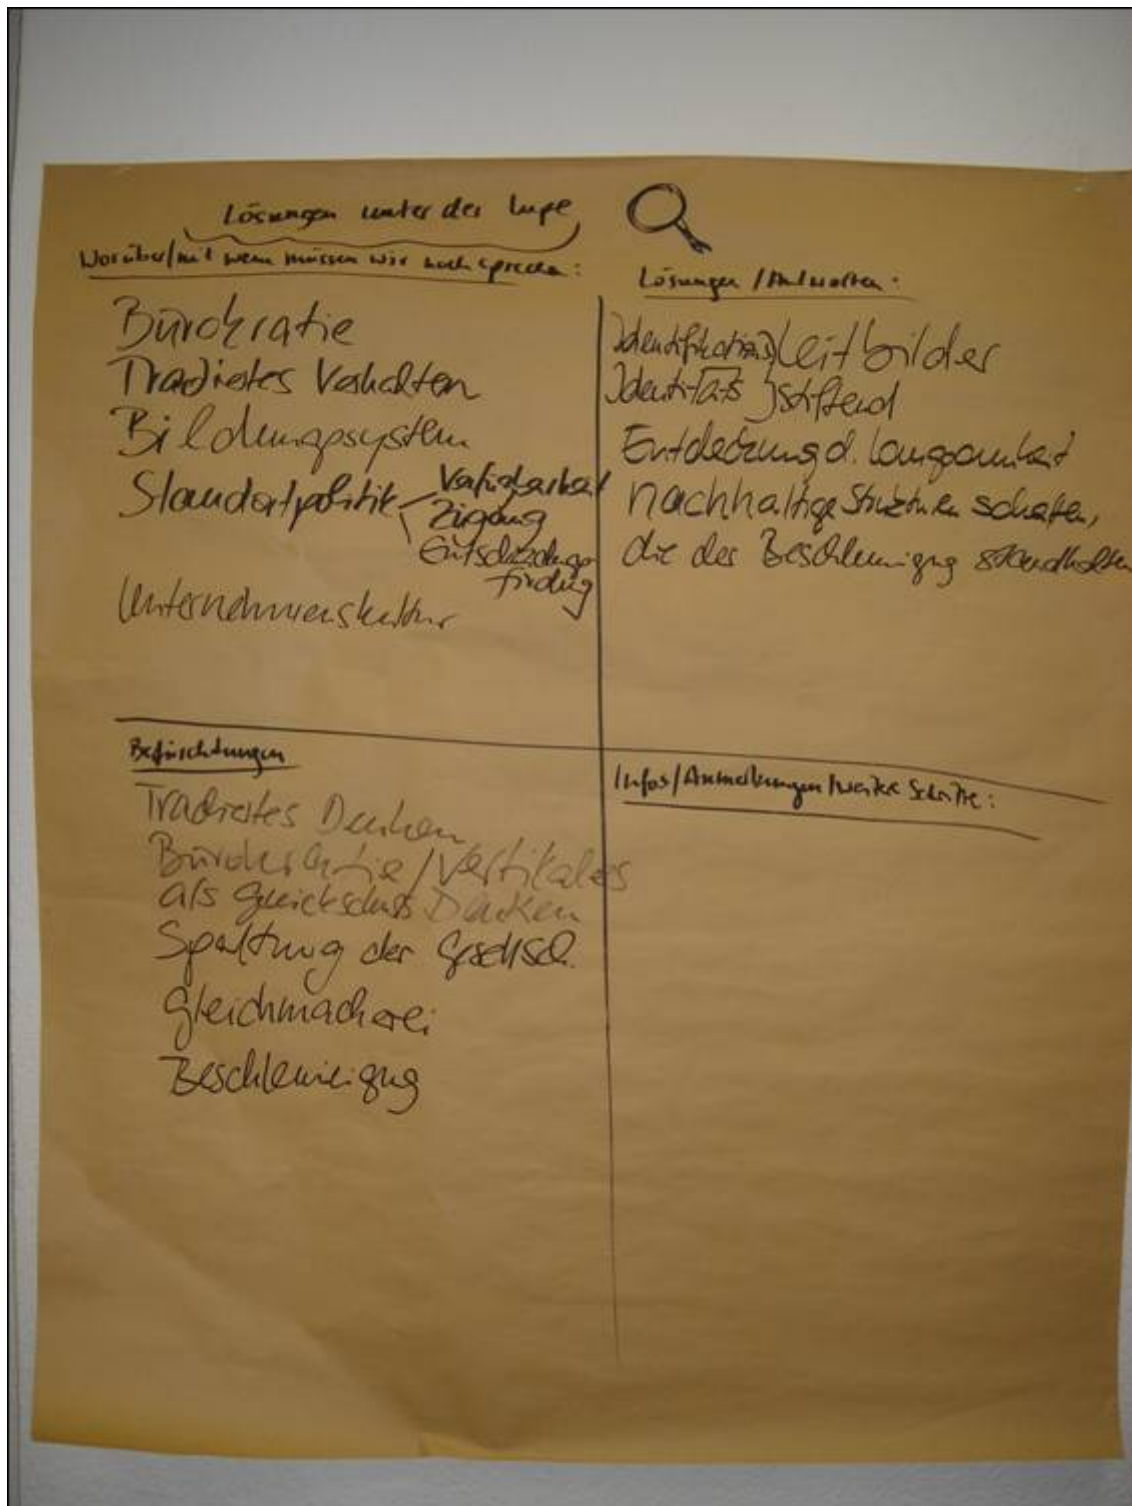 Lösungen unter der Lupe
Worüber/mit wem müssen wir noch sprechen:
Bürokratie
Tradiertes Verhalten
Bildungssystem
Standortpolitik
Verfügbarkeit
Zugang
Entscheidungs
findung
Unternehmenskultur
Lösungen / Antworten:
Identifikations Leitbilder
Identitäts stiftend
Entdeckung d. Langsamkeit
nachhaltige Strukturen schaffen,
die der Beschleunigung standhalten
Befürchtungen
Tradiertes Denken
Bürokratie / Vertikales
als Denken
Spaltung der Gesellsch.
Gleichmacherei
Beschleunigung
Infos/Anmerkungen/weitere Schritte: